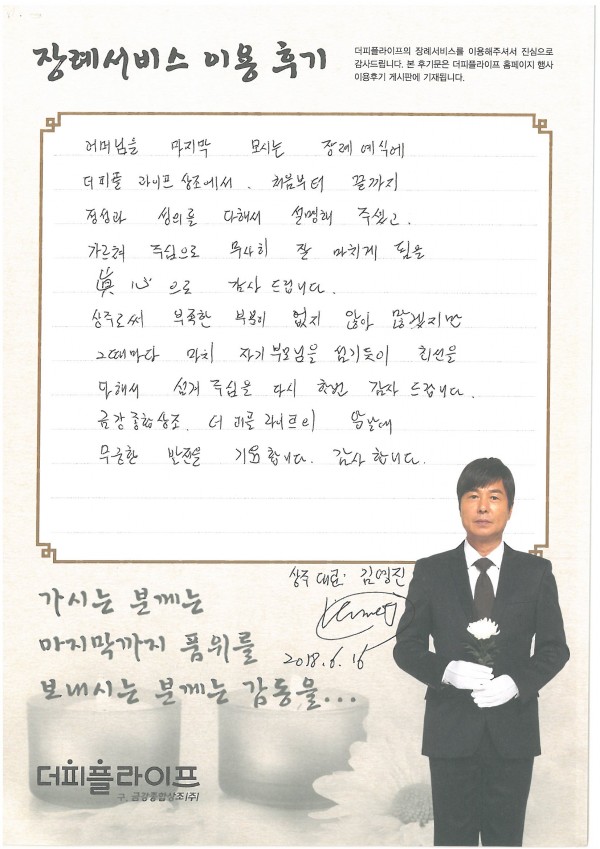 장례서비스 이용 후기
더피플라이프의 장례서비스를 이용해주셔서 진심으로
감사드립니다. 본 후기문은 더피플라이프 홈페이지 행사
이용후기 게시판에 기재됩니다.
어머님을 마지막 모시는 장례 예식에
더피플 라이프 상조에서. 처음부터 끝까지
정성과 성의를 다해서 설명해 주셨고.
가르쳐 주심으로 무사히 잘 마치게 됨을
眞心으로 감사 드립니다.
상주로써 부족한 부분이 없지 않아 많겠지만
그때마다 마치 자기 부모님을 섬기듯이 최선을
다해서 섬겨 주심을 다시 한번 감사 드립니다.
금강종합상조. 더 피플 라이프의 앞날에
무궁한 발전을 기원합니다. 감사합니다.
상주 대표: 김영진
2018.6.16
가시는 분께는
마지막까지 품위를
보내시는 분께는 감동을...
더피플라이프
구. 금강종합상조(주)